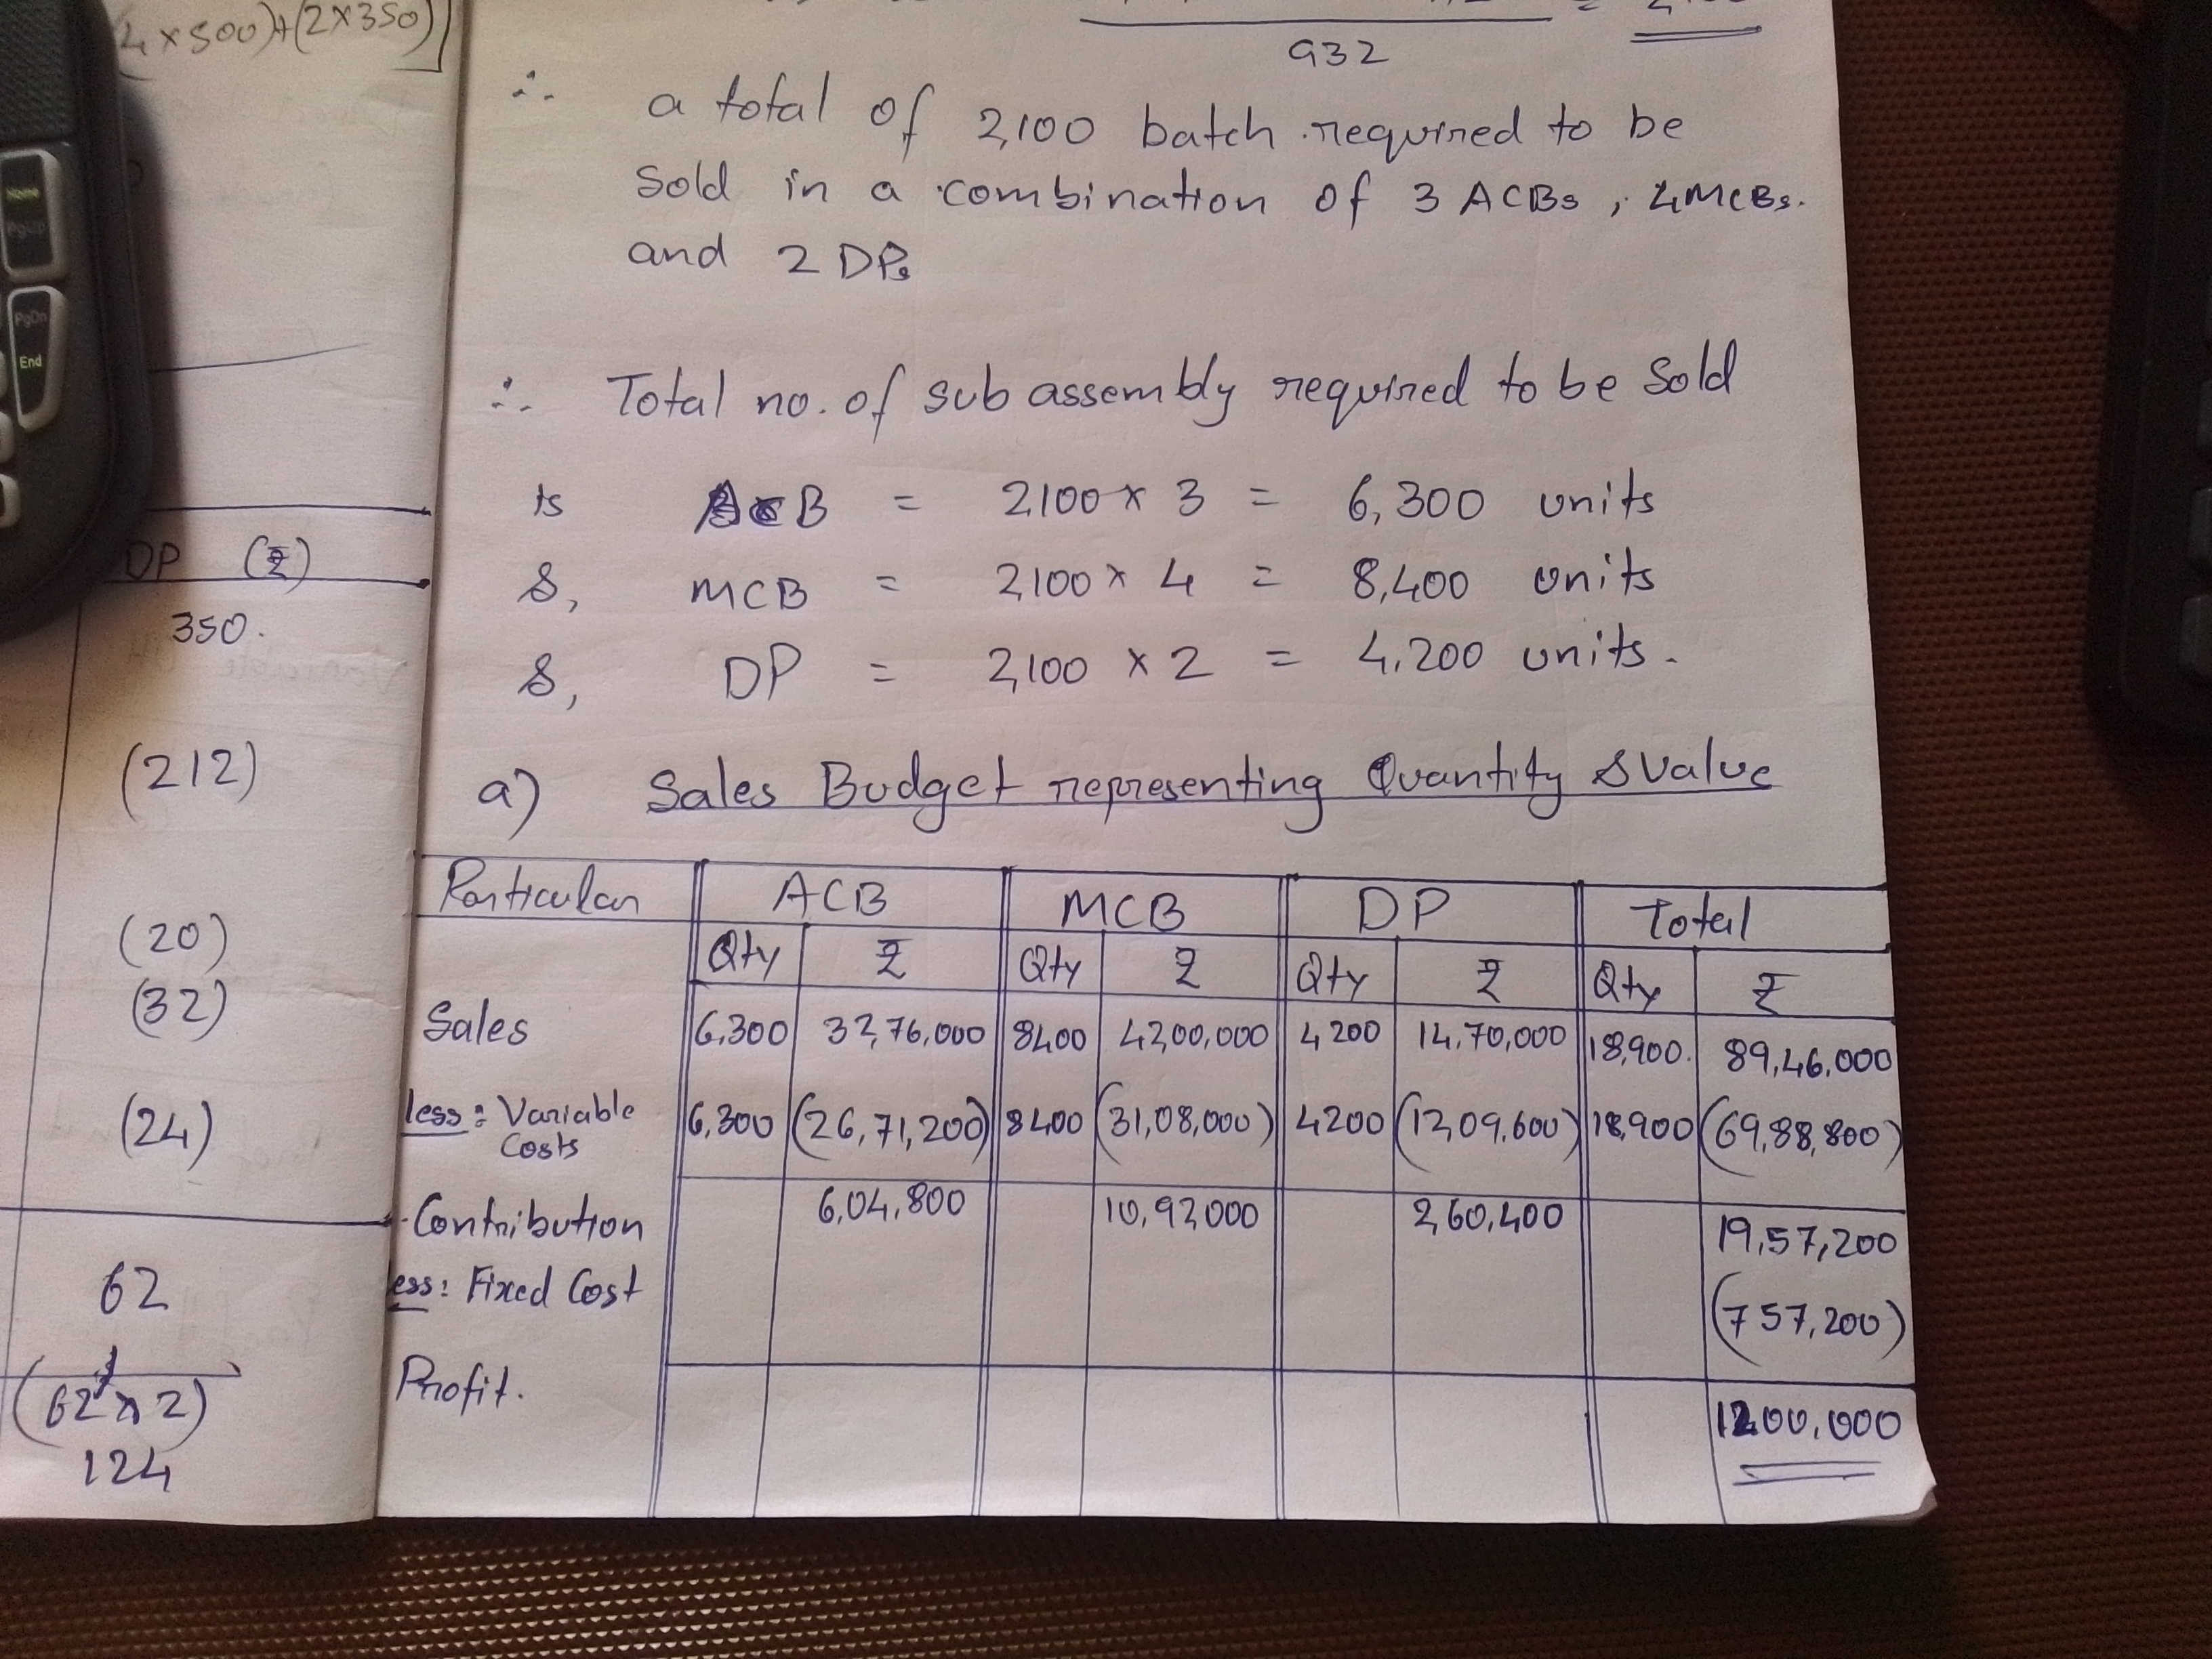 4 × 500) + (2 × 350)]
932
∴ a total of 2,100 batch required to be
sold in a combination of 3 ACBs, 4 MCBs.
and 2 DPs
∴ Total no. of sub assembly required to be sold
is ACB = 2,100 × 3 = 6,300 units
&, MCB = 2,100 × 4 = 8,400 units
&, DP = 2,100 × 2 = 4,200 units.
a) Sales Budget representing Quantity & Value
Particular ACB MCB DP Total
Qty ₹ Qty ₹ Qty ₹ Qty ₹
Sales 6,300 32,76,000 8400 42,00,000 4200 14,70,000 18,900. 89,46,000
less: Variable Costs 6,300 (26,71,200) 8400 (31,08,000) 4200 (12,09,600) 18,900 (69,88,800)
Contribution 6,04,800 10,92,000 2,60,400 19,57,200
ess: Fixed Cost (757,200)
Profit. 1200,000
DP (₹)
350.
(212)
(20)
(32)
(24)
62
(62 × 2)
124
Home
PgUp
PgDn
End